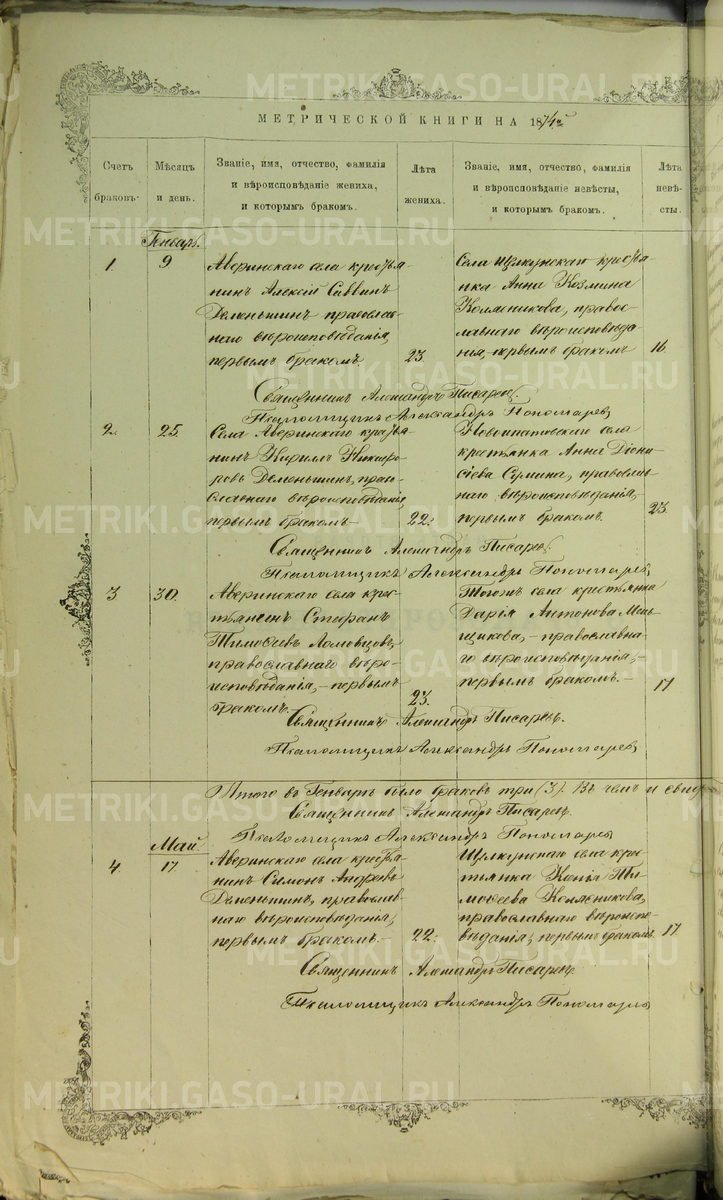 МЕТРИЧЕСКОЙ КНИГИ НА 1874
Счетъ браковъ.
Мѣсяцъ и день.
Званіе, имя, отчество, фамилія
и вѣроисповѣданіе жениха,
и которымъ бракомъ.
Лѣта жениха.
Званіе, имя, отчество, фамилія
и вѣроисповѣданіе невѣсты,
и которымъ бракомъ.
Лѣта невѣ-
сты.
Генварь.
1. 9
Аверинскаго села крестья-
нинъ Алексій Саввинъ
Деменьшинъ православ-
наго вѣроисповѣданія,
первымъ бракомъ.
23.
Села Щелкунскаго крестья-
нка Анна Козмина
Колясникова, право-
славнаго вѣроисповѣда-
нія, первымъ бракомъ
16.
Священникъ Александръ Писаревъ.
Псаломщикъ Александръ Пономаревъ
2. 25.
Села Аверинскаго крестья-
нинъ Кириллъ Никифо-
ровъ Деменьшинъ, пра-
вославнаго вѣроисповѣданія,
первымъ бракомъ.
22.
Новоипатовскаго села
крестьянка Анна Діони-
сіева Сумина, православ-
наго вѣроисповѣданія,
первымъ бракомъ.
23
Священникъ Александръ Писаревъ.
Псаломщикъ Александръ Пономаревъ
3 30.
Аверинскаго села крес-
тьянинъ Стефанъ
Тимофеевъ Ломовцовъ,
православнаго вѣро-
исповѣданія, первымъ
бракомъ.
23.
Тогожъ села крестьянка
Дарія Антонова Мень-
щикова, православна-
го вѣроисповѣданія,
первымъ бракомъ.
17
Священникъ Александръ Писаревъ.
Псаломщикъ Александръ Пономаревъ
Итого въ Генварѣ было браковъ три (3). Въ чемъ и свид
Священникъ Александръ Писаревъ.
Псаломщикъ Александръ Пономаревъ
Май
4. 17.
Аверинскаго села крестья-
нинъ Симонъ Андреевъ
Деменьшинъ, православ-
наго вѣроисповѣданія,
первымъ бракомъ.
22.
Щелкунскаго села крес-
тьянка Ксенія Ти-
мофеева Колясникова,
православнаго вѣроиспо-
вѣданія, первымъ бракомъ.
17
Священникъ Александръ Писаревъ
Псаломщикъ Александръ Пономаревъ
METRIKI.GASO-URAL.RU